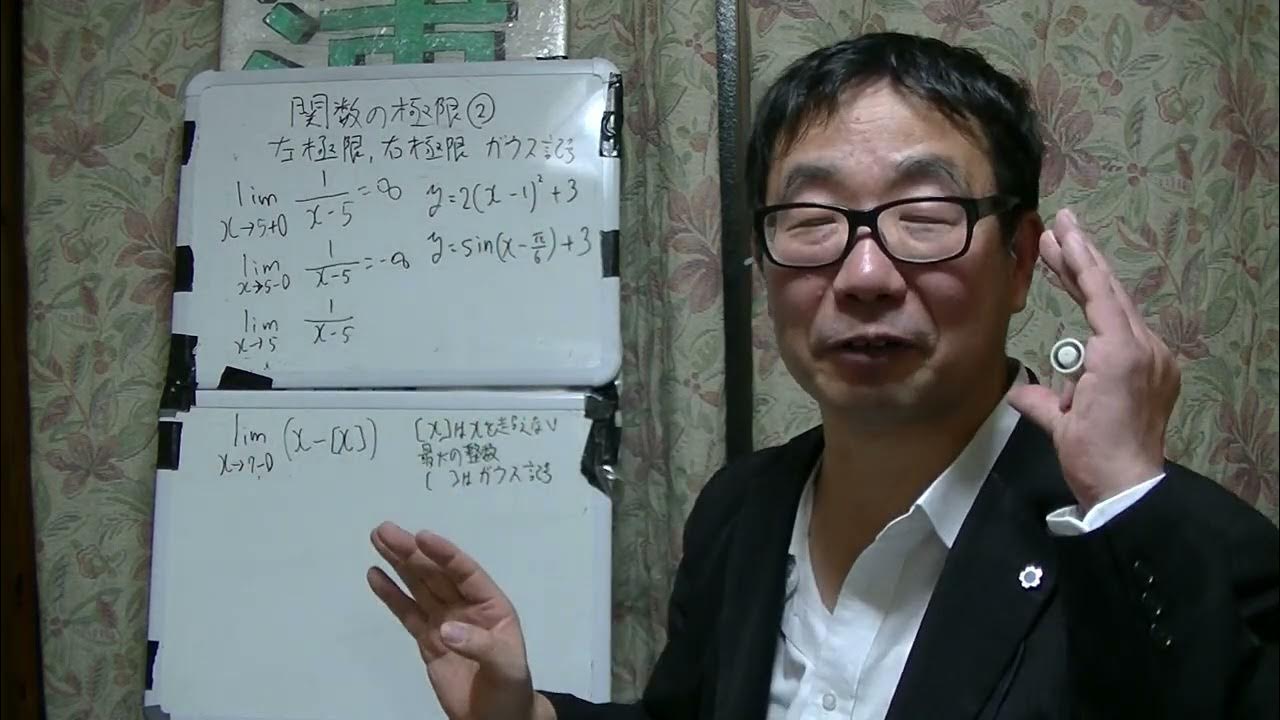 関数の極限②
左極限, 右極限 ガウス記号
lim x→5+0 1/(x-5) = ∞
y=2(x-1)²+3
lim x→5-0 1/(x-5) = -∞
y=sin(x-π/6)+3
lim x→5 1/(x-5)
lim x→7-0 (x-[x])
[x]はxを超えない
最大の整数
[ ]はガウス記号